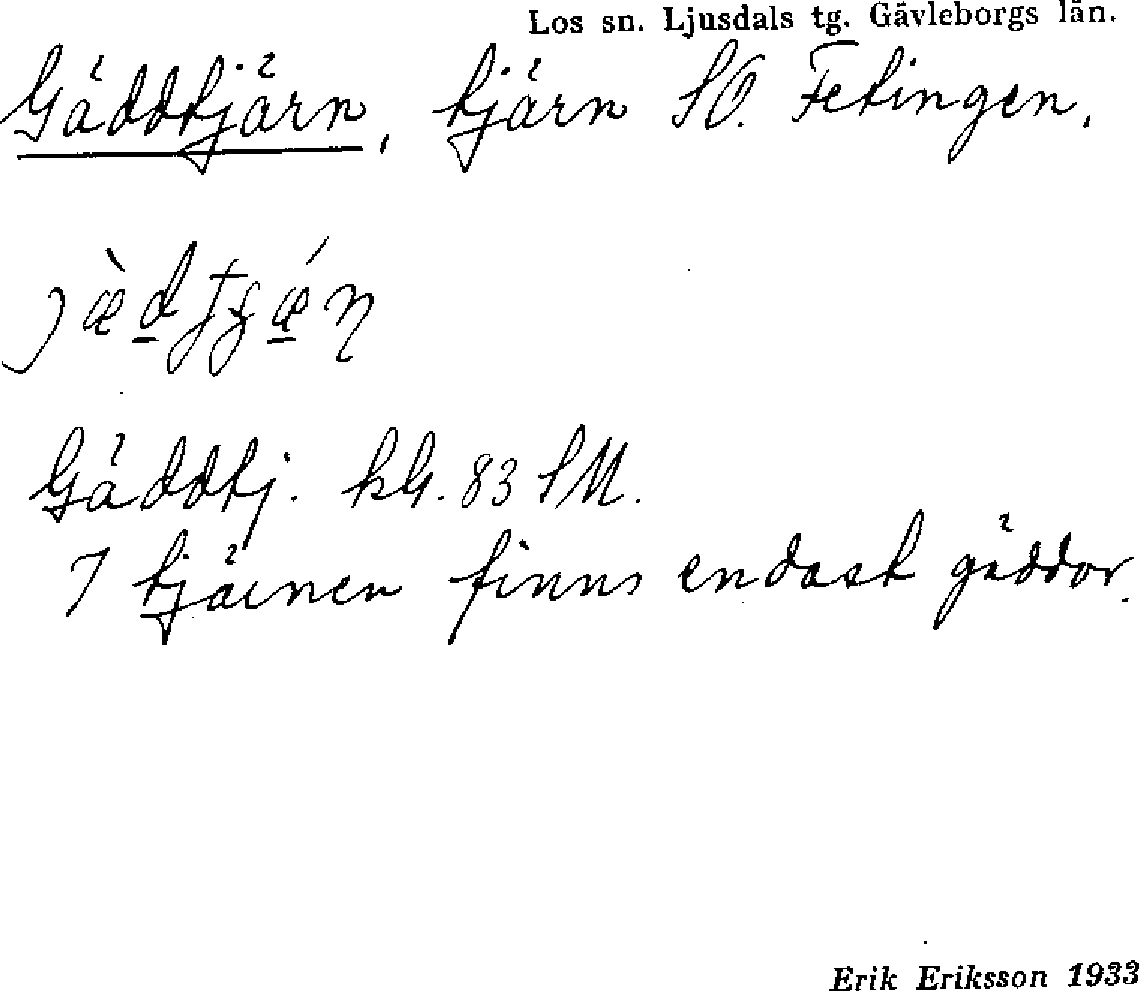 Los sn. Ljusdals tg. Gävleborgs län.
Gäddtjärn, tjärn SO. Fetingen.
Gäddtj. kG. 83 SM.
I tjärnen finns endast gäddor.
Erik Eriksson 1933